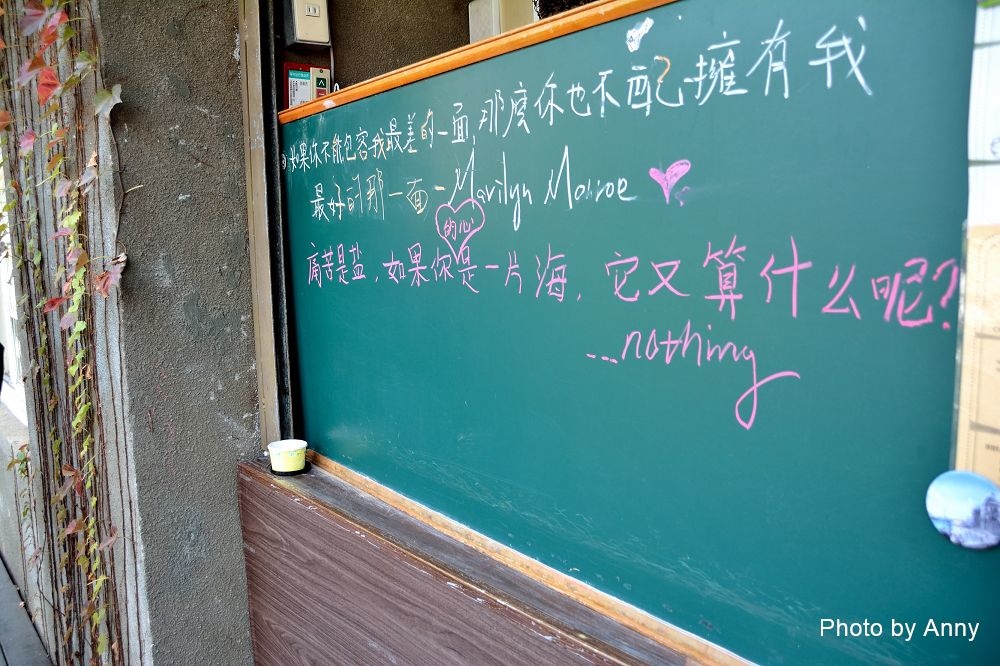 如果你不能包容我最差的一面,那麼你也不配擁有我
最好的那一面 - Marilyn Monroe
的心
痛苦是盐,如果你是一片海,它又算什么呢?
...nothing
Photo by Anny